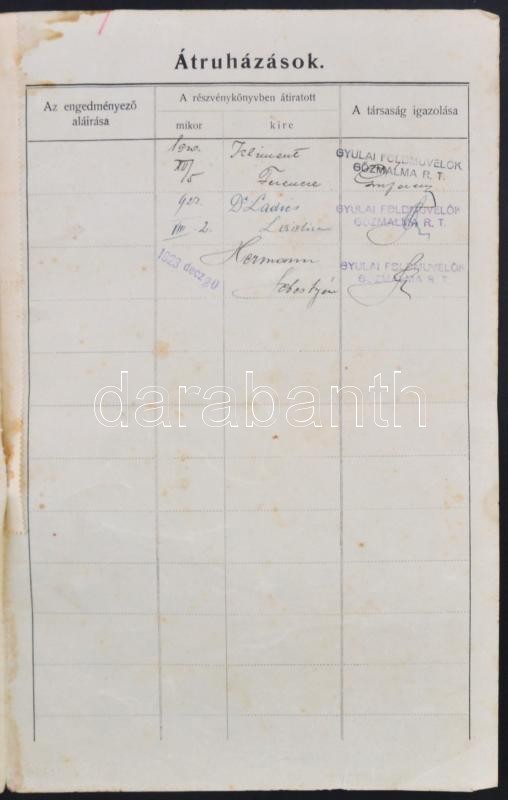 Átruházások.
Az engedményező
aláirása
A részvénykönyvben átiratott
mikor
kire
A társaság igazolása
XII/5
Kliment
Ferencre
GYULAI FÖLDMŰVELŐK
GŐZMALMA R. T.
VIII. 2.
Dr Ladics
GYULAI FÖLDMŰVELŐK
GŐZMALMA R. T.
1923 decz
Hermann
Sebestyén
GYULAI FÖLDMŰVELŐK
GŐZMALMA R. T.
darabanth